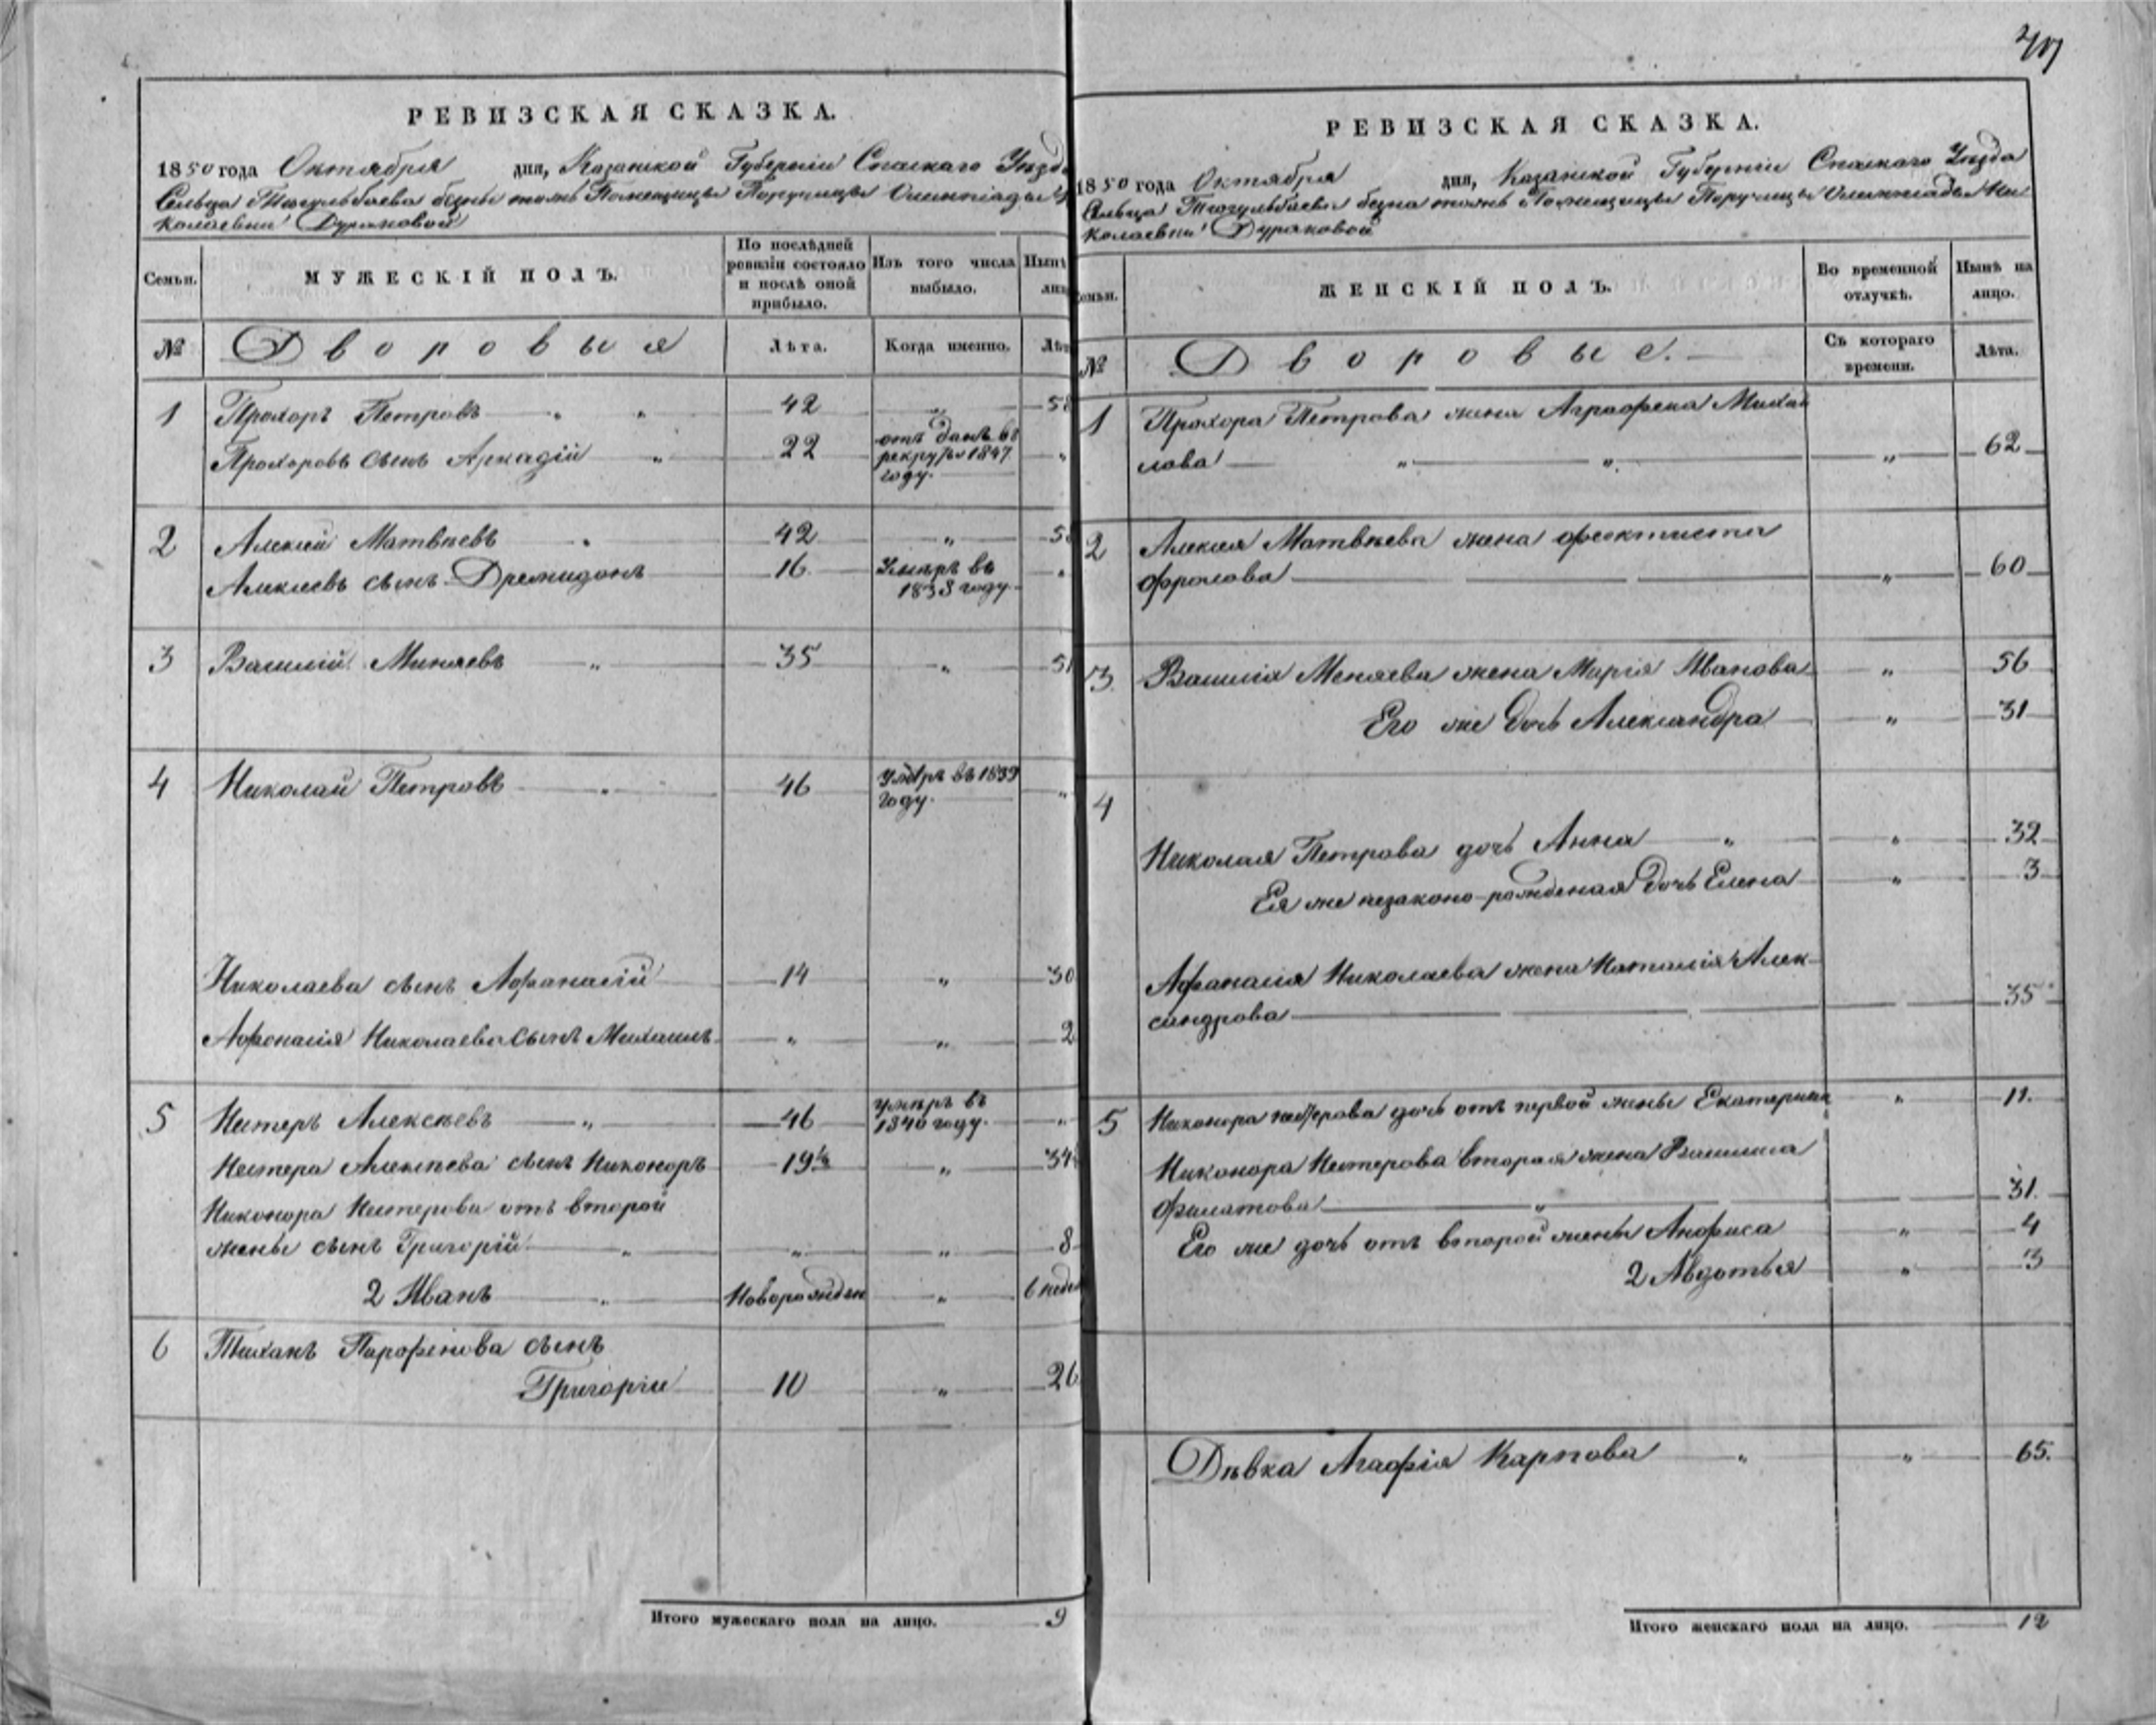 РЕВИЗСКАЯ СКАЗКА.
1850 года Октября дня, Казанской Губернии Спаскаго Уезда
Сельца Тюгульбаева безна тожъ Помещицы Поручицы Олимпіады Ни
колаевны Дураковой
Семьи. МУЖЕСКІЙ ПОЛЪ. По послѣдней ревизіи состояло и послѣ оной прибыло. Изъ того числа выбыло. Нынѣ
№ Дворовыя Лѣта. Когда именно. Лѣт
1 Прохоръ Петровъ " " 42 " 58
Прохоровъ сынъ Аркадій " 22 отъ данъ въ рекруты 1847 году. "
2 Алексей Матвѣевъ " 42 " 58
Алексеевъ сынъ Дремидонъ 16 Умѣръ въ 1838 году. "
3 Василий Миняевъ " 35 " 51
4 Николай Петровъ " 46 Умѣръ въ 1839 году. "
Николаева сынъ Афанасій 14 " 30
Афонасія Николаева сынъ Михаилъ " " 2
5 Нестеръ Алексѣевъ " 46 Умѣръ въ 1840 году. "
Нестера Алексѣева сынъ Никоноръ 19 " 34
Никонора Нестерова отъ второй
жены сынъ Григорій " " " 8
2 Иванъ " Новорожден " 6 недел
6 Тиханъ Парфенова сынъ
Григории 10 " 26
Итого мужескаго пола на лицо. 9
РЕВИЗСКАЯ СКАЗКА.
1850 года Октября дня, Казанской Губерніи Спаскаго Уезда
Сельца Тюгульбаева безна тожъ Помещицы Поручицы Олимпіады Ни
колаевны Дураковой
Семьи. ЖЕНСКІЙ ПОЛЪ. Во временной отлучкѣ. Нынѣ на лицо.
№ Дворовые. Съ котораго времени. Лѣта.
1 Прохора Петрова жена Аграфена Михай
лова " " " 62
2 Алексея Матвѣева жена Феоктиста
Фролова " 60
3. Василія Меняева жена Марія Иванова " 56
Его же дочь Александра " 31
4
Николая Петрова дочь Анна " " 32
Ея же незаконо-рожденая дочь Елена " 3
Афанасия Николаева жена Наталія Алек-
сандрова 35
5 Никонора нестерова дочь отъ первой жены Екатерина " 11.
Никонора Нестерова вторая жена Василиса
Филатова " 31.
Его же дочь отъ второй жены Анфиса " 4
2 Авдотья " 3
Дѣвка Агафія Карпова " " 65.
Итого женскаго пола на лицо. 12